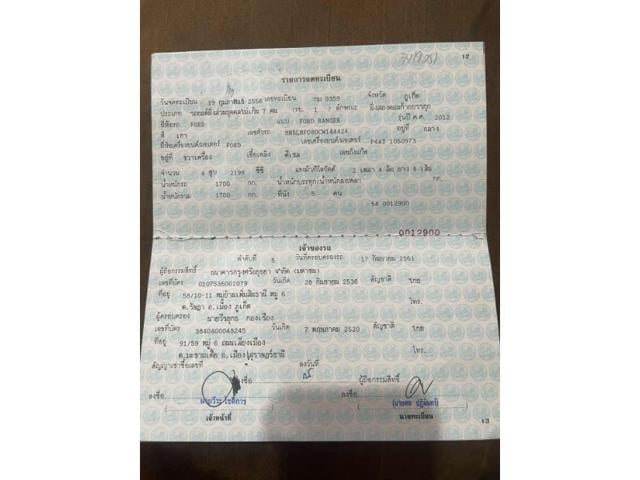 12
รายการจดทะเบียน
วันจดทะเบียน 19 กุมภาพันธ์ 2556 เลขทะเบียน กม 9359 จังหวัด ภูเก็ต
ประเภท รถยนต์นั่งส่วนบุคคลไม่เกิน 7 คน (รย. 1 ) ลักษณะ นั่งสองตอนท้ายบรรทุก
ยี่ห้อรถ FORD แบบ FORD RANGER รุ่นปี ค.ศ. 2012
สี เทา เลขตัวรถ อยู่ที่ กลาง
ยี่ห้อเครื่องยนต์/มอเตอร์ FORD เลขเครื่องยนต์/มอเตอร์ P4AT 1050973
อยู่ที่ ขวาเครื่อง เชื้อเพลิง ดีเซล เลขถังแก๊ส
จำนวน 4 สูบ 2198 ซีซี แรงม้า/กิโลวัตต์ 2 เพลา 4 ล้อ ยาง 4 เส้น
น้ำหนักรถ 1700 กก. น้ำหนักบรรทุก/น้ำหนักลงเพลา กก.
น้ำหนักรวม 1700 กก. ที่นั่ง 5 คน
54 0012900
0012900
เจ้าของรถ
ลำดับที่ 5 วันที่ครอบครองรถ 17 กันยายน 2561
ผู้ถือกรรมสิทธิ์ ธนาคารกรุงศรีอยุธยา จำกัด (มหาชน)
เลขที่บัตร 0107536001079 วันเกิด 28 กันยายน 2536 สัญชาติ ไทย
ที่อยู่ 58/10-11 หมู่ 6
ต.รัษฎา อ.เมือง ภูเก็ต โทร.
ผู้ครอบครอง นายวีรยุทธ กองเรือง
เลขที่บัตร 3840400048245 วันเกิด 7 พฤษภาคม 2520 สัญชาติ ไทย
ที่อยู่ 91/59 หมู่ 6 ถนนเลี่ยงเมือง
ต.มะขามเตี้ย อ.เมืองสุราษฎร์ธานี โทร.
สัญญาเช่าซื้อเลขที่ ลงวันที่
ชื่อ ผู้ถือกรรมสิทธิ์
ลงชื่อ ลงชื่อ
เจ้าหน้าที่ นายทะเบียน
13